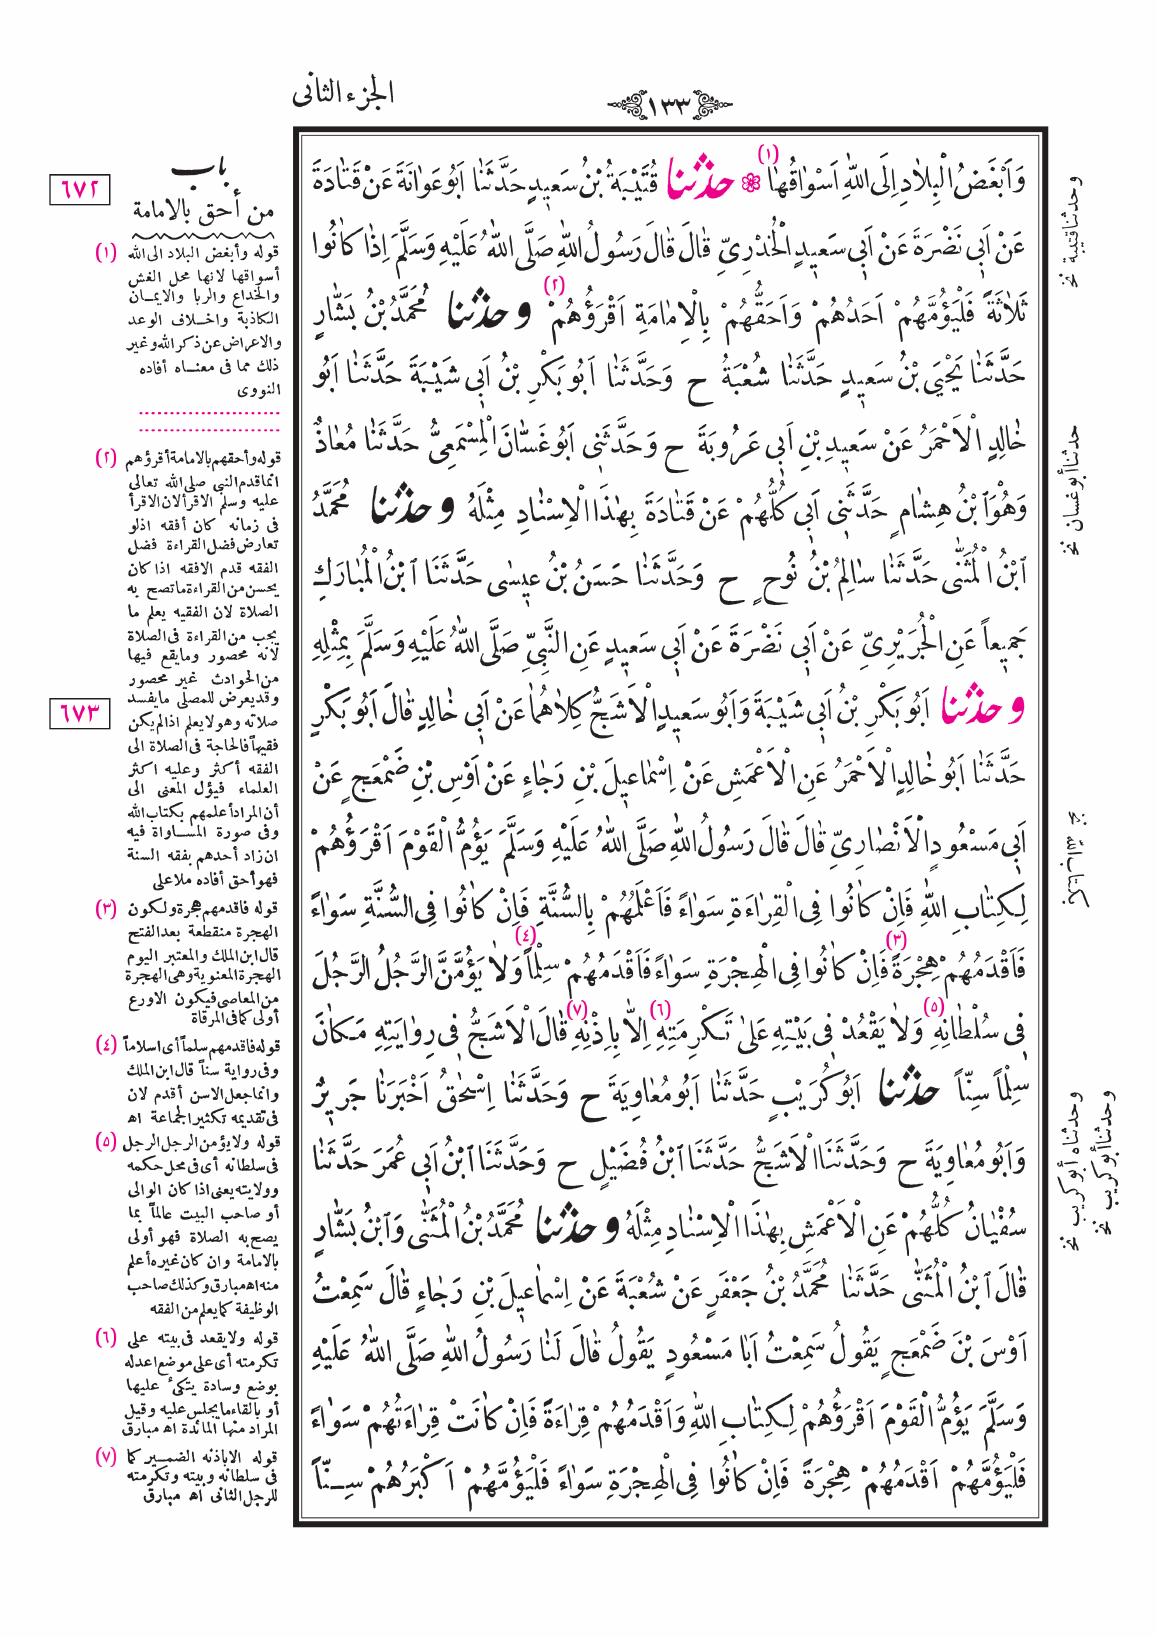 الجزء الثانى
١٣٣
وَاَبْغَضُ الْبِلَادِ اِلَى اللّٰهِ اَسْوَاقُهَا (١) ❁ حدثنا قُتَيْبَةُ بْنُ سَعِيدٍ حَدَّثَنَا اَبُو عَوَانَةَ عَنْ قَتَادَةَ
عَنْ اَبِى نَضْرَةَ عَنْ اَبِى سَعِيدٍ الْخُدْرِىِّ قَالَ قَالَ رَسُولُ اللّٰهِ صَلَّى اللّٰهُ عَلَيْهِ وَسَلَّمَ اِذَا كَانُوا
ثَلَاثَةً فَلْيَؤُمَّهُمْ اَحَدُهُمْ وَاَحَقُّهُمْ بِالْاِمَامَةِ اَقْرَؤُهُمْ (٢) و حدثنا مُحَمَّدُ بْنُ بَشَّارٍ
حَدَّثَنَا يَحْيَى بْنُ سَعِيدٍ حَدَّثَنَا شُعْبَةُ ح وَحَدَّثَنَا اَبُو بَكْرِ بْنُ اَبِى شَيْبَةَ حَدَّثَنَا اَبُو
خَالِدٍ الْاَحْمَرُ عَنْ سَعِيدِ بْنِ اَبِى عَرُوبَةَ ح وَحَدَّثَنِى اَبُو غَسَّانَ الْمِسْمَعِىُّ حَدَّثَنَا مُعَاذٌ
وَهُوَ ابْنُ هِشَامٍ حَدَّثَنِى اَبِى كُلُّهُمْ عَنْ قَتَادَةَ بِهٰذَا الْاِسْنَادِ مِثْلَهُ و حدثنا مُحَمَّدُ
ابْنُ الْمُثَنّٰى حَدَّثَنَا سَالِمُ بْنُ نُوحٍ ح وَحَدَّثَنَا حَسَنُ بْنُ عِيسٰى حَدَّثَنَا ابْنُ الْمُبَارَكِ
جَمِيعاً عَنِ الْجُرَيْرِىِّ عَنْ اَبِى نَضْرَةَ عَنْ اَبِى سَعِيدٍ عَنِ النَّبِىِّ صَلَّى اللّٰهُ عَلَيْهِ وَسَلَّمَ بِمِثْلِهِ
و حدثنا اَبُو بَكْرِ بْنُ اَبِى شَيْبَةَ وَاَبُو سَعِيدٍ الْاَشَجُّ كِلَاهُمَا عَنْ اَبِى خَالِدٍ قَالَ اَبُو بَكْرٍ
حَدَّثَنَا اَبُو خَالِدٍ الْاَحْمَرُ عَنِ الْاَعْمَشِ عَنْ اِسْمَاعِيلَ بْنِ رَجَاءٍ عَنْ اَوْسِ بْنِ ضَمْعَجٍ عَنْ
اَبِى مَسْعُودٍ الْاَنْصَارِىِّ قَالَ قَالَ رَسُولُ اللّٰهِ صَلَّى اللّٰهُ عَلَيْهِ وَسَلَّمَ يَؤُمُّ الْقَوْمَ اَقْرَؤُهُمْ
لِكِتَابِ اللّٰهِ فَاِنْ كَانُوا فِى الْقِرَاءَةِ سَوَاءً فَاَعْلَمُهُمْ بِالسُّنَّةِ فَاِنْ كَانُوا فِى السُّنَّةِ سَوَاءً
فَاَقْدَمُهُمْ هِجْرَةً (٣) فَاِنْ كَانُوا فِى الْهِجْرَةِ سَوَاءً فَاَقْدَمُهُمْ سِلْماً (٤) وَلَا يَؤُمَّنَّ الرَّجُلُ الرَّجُلَ
فِى سُلْطَانِهِ (٥) وَلَا يَقْعُدْ فِى بَيْتِهِ عَلٰى تَكْرِمَتِهِ (٦) اِلَّا بِاِذْنِهِ (٧) قَالَ الْاَشَجُّ فِى رِوَايَتِهِ مَكَانَ
سِلْماً سِنّاً حدثنا اَبُو كُرَيْبٍ حَدَّثَنَا اَبُو مُعَاوِيَةَ ح وَحَدَّثَنَا اِسْحٰقُ اَخْبَرَنَا جَرِيرٌ
وَاَبُو مُعَاوِيَةَ ح وَحَدَّثَنَا الْاَشَجُّ حَدَّثَنَا ابْنُ فُضَيْلٍ ح وَحَدَّثَنَا ابْنُ اَبِى عُمَرَ حَدَّثَنَا
سُفْيَانُ كُلُّهُمْ عَنِ الْاَعْمَشِ بِهٰذَا الْاِسْنَادِ مِثْلَهُ و حدثنا مُحَمَّدُ بْنُ الْمُثَنّٰى وَابْنُ بَشَّارٍ
قَالَ ابْنُ الْمُثَنّٰى حَدَّثَنَا مُحَمَّدُ بْنُ جَعْفَرٍ عَنْ شُعْبَةَ عَنْ اِسْمَاعِيلَ بْنِ رَجَاءٍ قَالَ سَمِعْتُ
اَوْسَ بْنَ ضَمْعَجٍ يَقُولُ سَمِعْتُ اَبَا مَسْعُودٍ يَقُولُ قَالَ لَنَا رَسُولُ اللّٰهِ صَلَّى اللّٰهُ عَلَيْهِ
وَسَلَّمَ يَؤُمُّ الْقَوْمَ اَقْرَؤُهُمْ لِكِتَابِ اللّٰهِ وَاَقْدَمُهُمْ قِرَاءَةً فَاِنْ كَانَتْ قِرَاءَتُهُمْ سَوَاءً
فَلْيَؤُمَّهُمْ اَقْدَمُهُمْ هِجْرَةً فَاِنْ كَانُوا فِى الْهِجْرَةِ سَوَاءً فَلْيَؤُمَّهُمْ اَكْبَرُهُمْ سِنّاً
وحدثنا قتيبة نخ
حدثنا أبو غسان نخ
وحدثناه أبو كريب نخ
وحدثنا أبو كريب نخ
باب
٦٧٢
من أحق بالامامة
(١) قوله وأبغض البلاد الى الله
أسواقها لانها محل الغش
والخداع والربا والايمان
الكاذبة واخلاف الوعد
والاعراض عن ذكر الله وغير
ذلك مما فى معناه أفاده
النووى
(٢) قوله وأحقهم بالامامة أقرؤهم
انما قدم النبى صلى الله تعالى
عليه وسلم الاقرأ لان الاقرأ
فى زمانه كان أفقه اذلو
تعارض فضل القراءة فضل
الفقه قدم الافقه اذا كان
يحسن من القراءة ما تصح به
الصلاة لان الفقيه يعلم ما
يجب من القراءة فى الصلاة
لانه محصور ومايقع فيها
من الحوادث غير محصور
وقد يعرض للمصلى مايفسد
صلاته وهو لا يعلم اذا لم يكن
٦٧٣
فقيهاً فالحاجة فى الصلاة الى
الفقه أكثر وعليه اكثر
العلماء فيؤل المعنى الى
أن المراد أعلمهم بكتاب الله
وفى صورة المساواة فيه
ان زاد أحدهم بفقه السنة
فهو أحق أفاده ملا على
(٣) قوله فاقدمهم هجرة ولكون
الهجرة منقطعة بعد الفتح
قال ابن الملك والمعتبر اليوم
الهجرة المعنوية وهى الهجرة
من المعاصى فيكون الاورع
أولى كما فى المرقاة
(٤) قوله فاقدمهم سلماً أى اسلاماً
وفى رواية سناً قال ابن الملك
وانما جعل الاسن أقدم لان
فى تقديمه تكثير الجماعة اه
(٥) قوله ولا يؤمن الرجل الرجل
فى سلطانه أى فى محل حكمه
وولايته يعنى اذا كان الوالى
أو صاحب البيت عالماً بما
يصح به الصلاة فهو أولى
بالامامة وان كان غيره أعلم
منه اه مبارق وكذلك صاحب
الوظيفة كما يعلم من الفقه
(٦) قوله ولا يقعد فى بيته على
تكرمته أى على موضع اعدله
بوضع وسادة يتكىء عليها
أو بالقاء ما يجلس عليه وقيل
المراد منها المائدة اه مبارق
(٧) قوله الا باذنه الضمير كما
فى سلطانه وبيته وتكرمته
للرجل الثانى اه مبارق